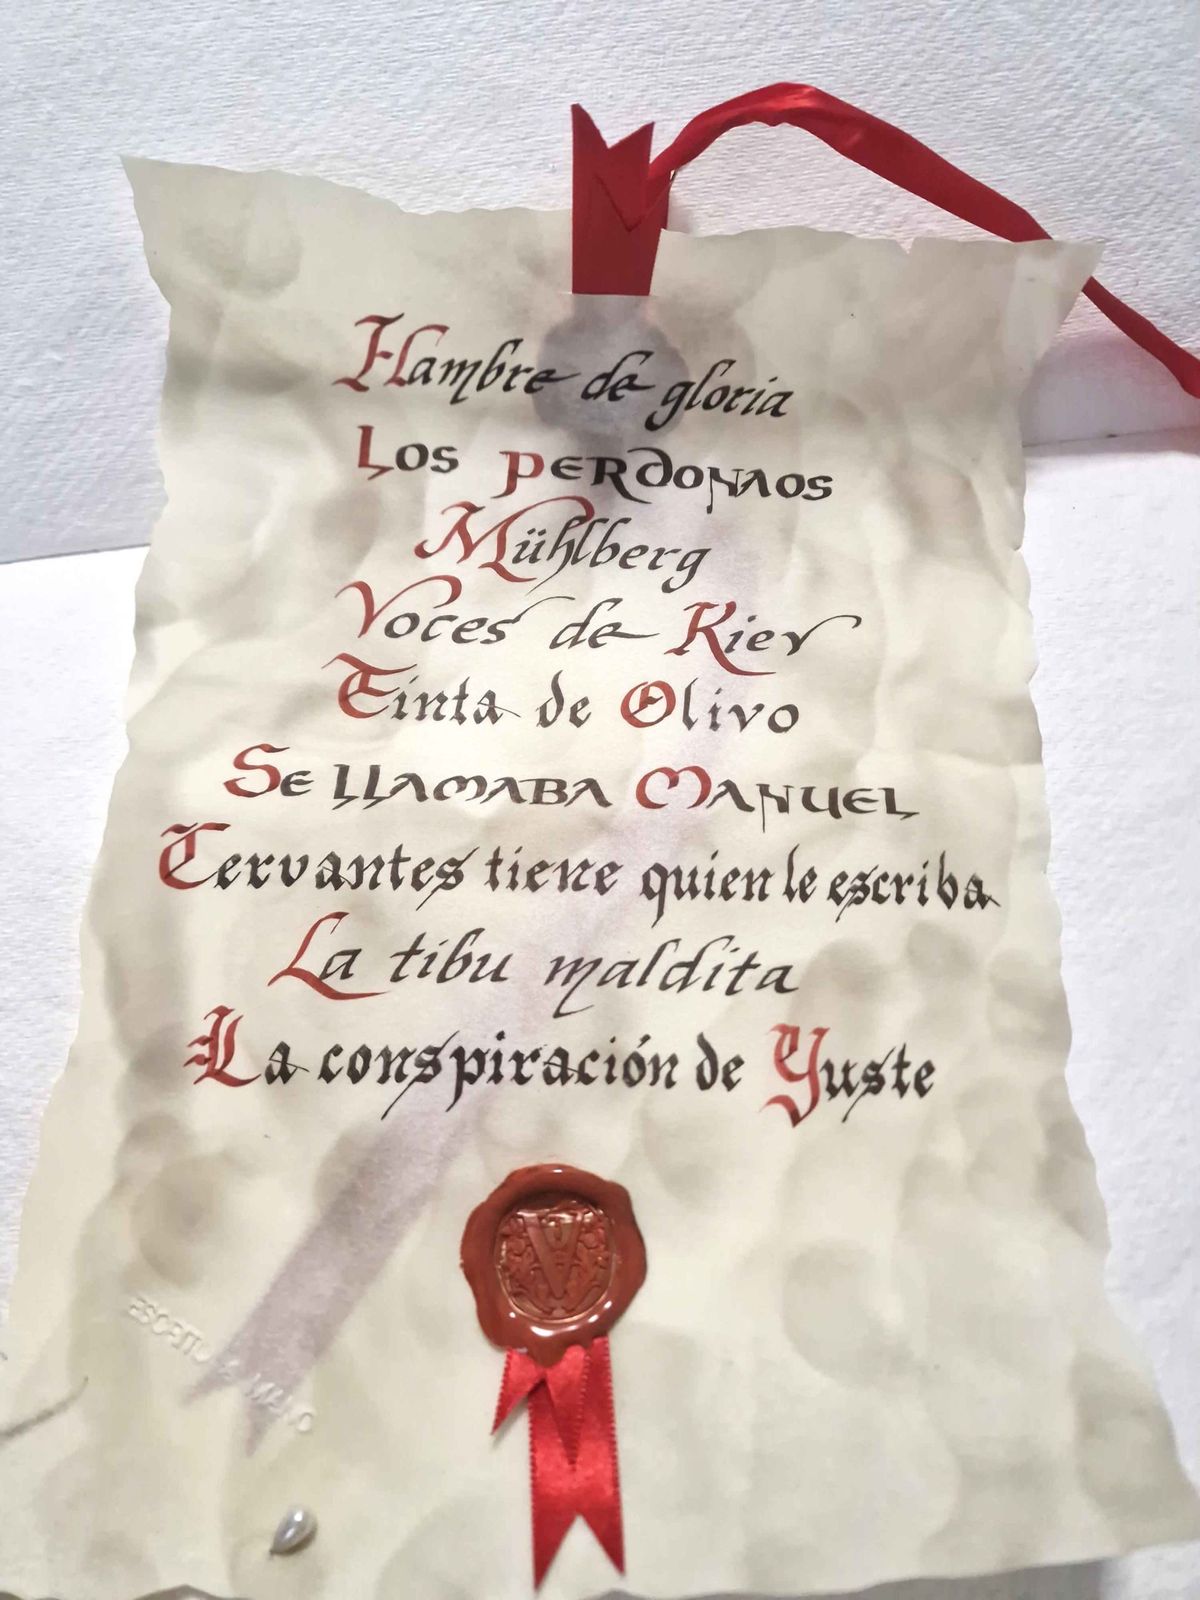 Hambre de gloria
Los perdonaos
Mühlberg
Voces de Kiev
Tinta de Olivo
Se llamaba Manuel
Cervantes tiene quien le escriba
La tibu maldita
La conspiración de Yuste
V
ESCRITO A MANO